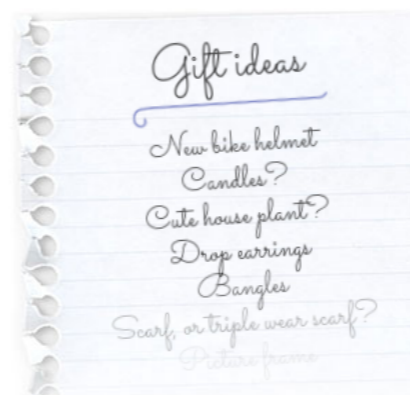 Gift ideas
New bike helmet
Candles?
Cute house plant?
Drop earrings
Bangles
Scarf, or triple wear scarf?
Picture frame